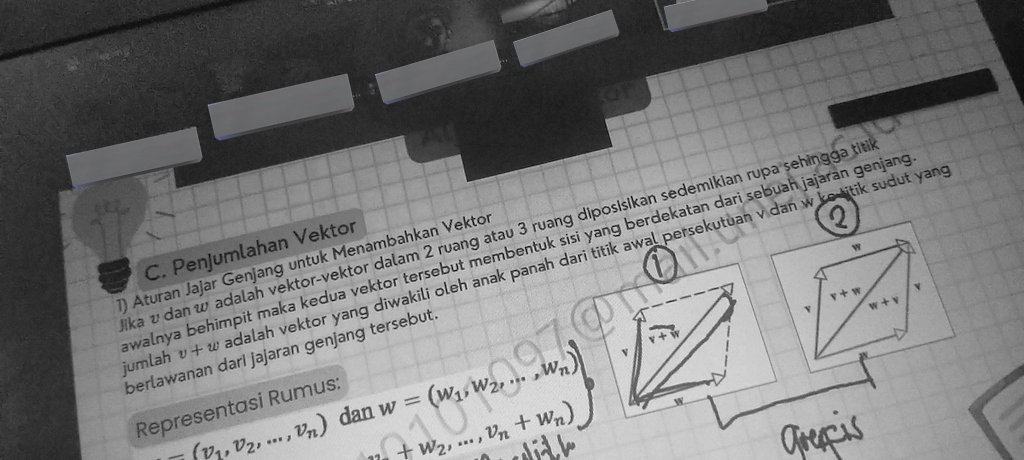 C. Penjumlahan Vektor
1) Aturan Jajar Genjang untuk Menambahkan Vektor
Jika v dan w adalah vektor-vektor dalam 2 ruang atau 3 ruang diposisikan sedemikian rupa sehingga titik
awalnya behimpit maka kedua vektor tersebut membentuk sisi yang berdekatan dari sebuah jajaran genjang.
jumlah v + w adalah vektor yang diwakili oleh anak panah dari titik awal persekutuan v dan w ke titik sudut yang
berlawanan dari jajaran genjang tersebut.
1
v
v + w
w
2
w
v
v + w
w + v
v
w
Representasi Rumus:
= (v₁, v₂, ..., vₙ) dan w = (w₁, w₂, ..., wₙ)
+ w₂, ..., vₙ + wₙ)